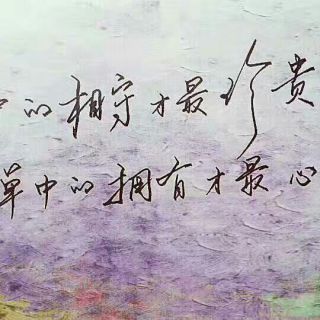 中的相守才最珍贵
单中的拥有才最心